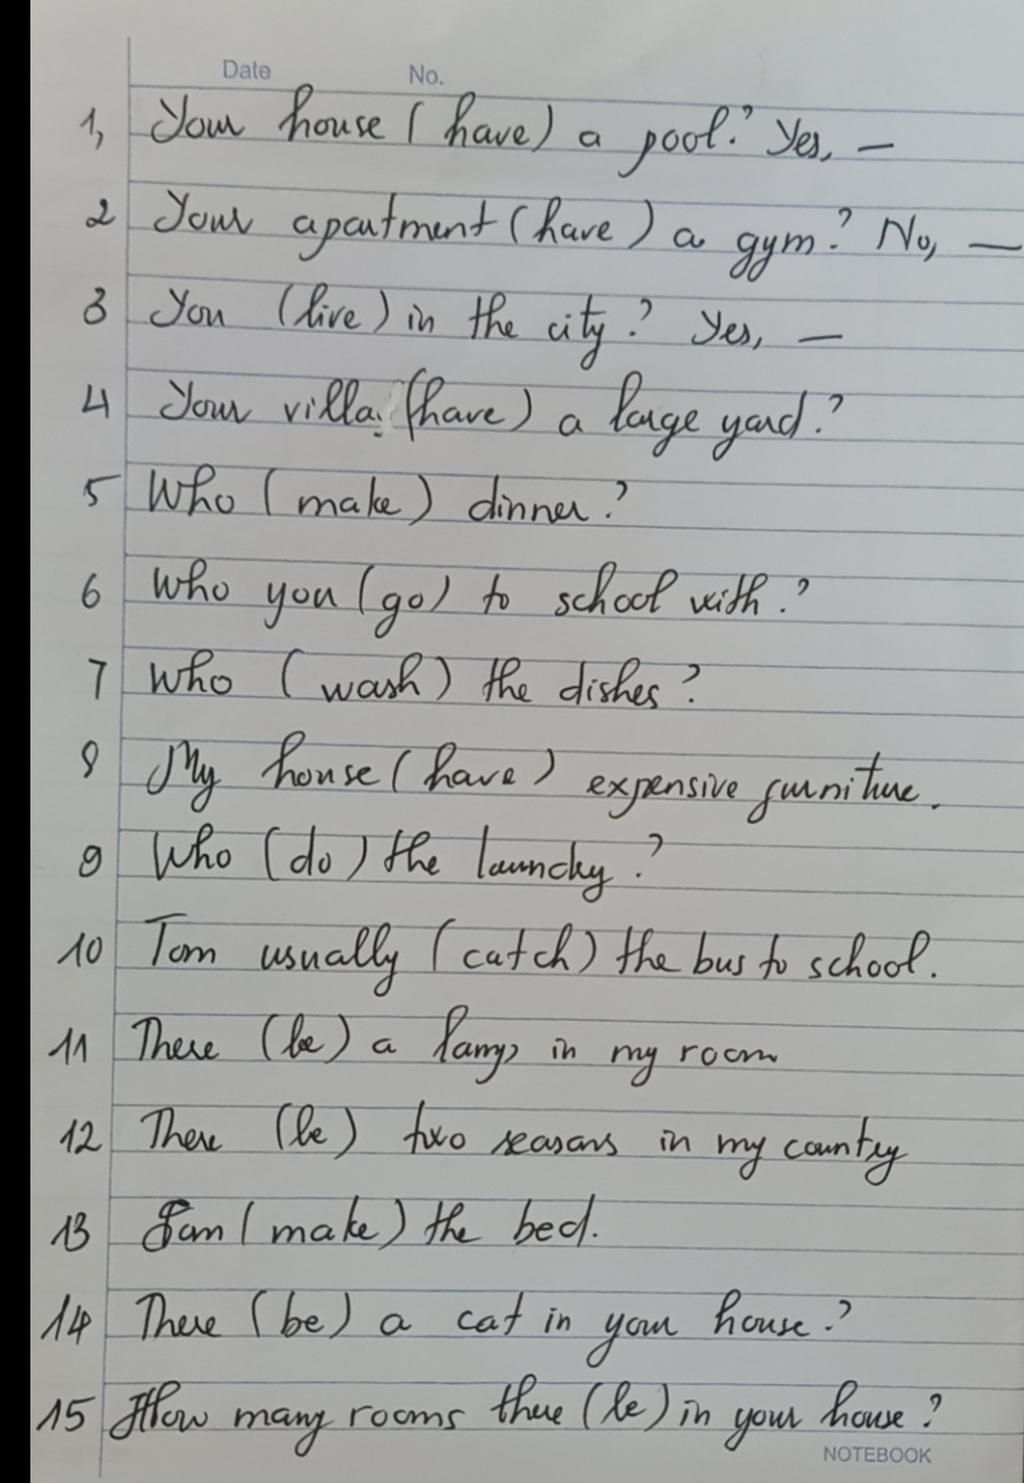 Date No.
1, Your house (have) a pool? Yes, —
2 Your apartment (have) a gym? No, —
3 You (live) in the city? Yes, —
4 Your villa (have) a large yard?
5 Who (make) dinner?
6 Who you (go) to school with?
7 Who (wash) the dishes?
8 My house (have) expensive furniture.
9 Who (do) the laundry?
10 Tom usually (catch) the bus to school.
11 There (be) a lamp in my room
12 There (be) two seasons in my country
13 (make) the bed.
14 There (be) a cat in your house?
15 How many rooms there (be) in your house?
NOTEBOOK